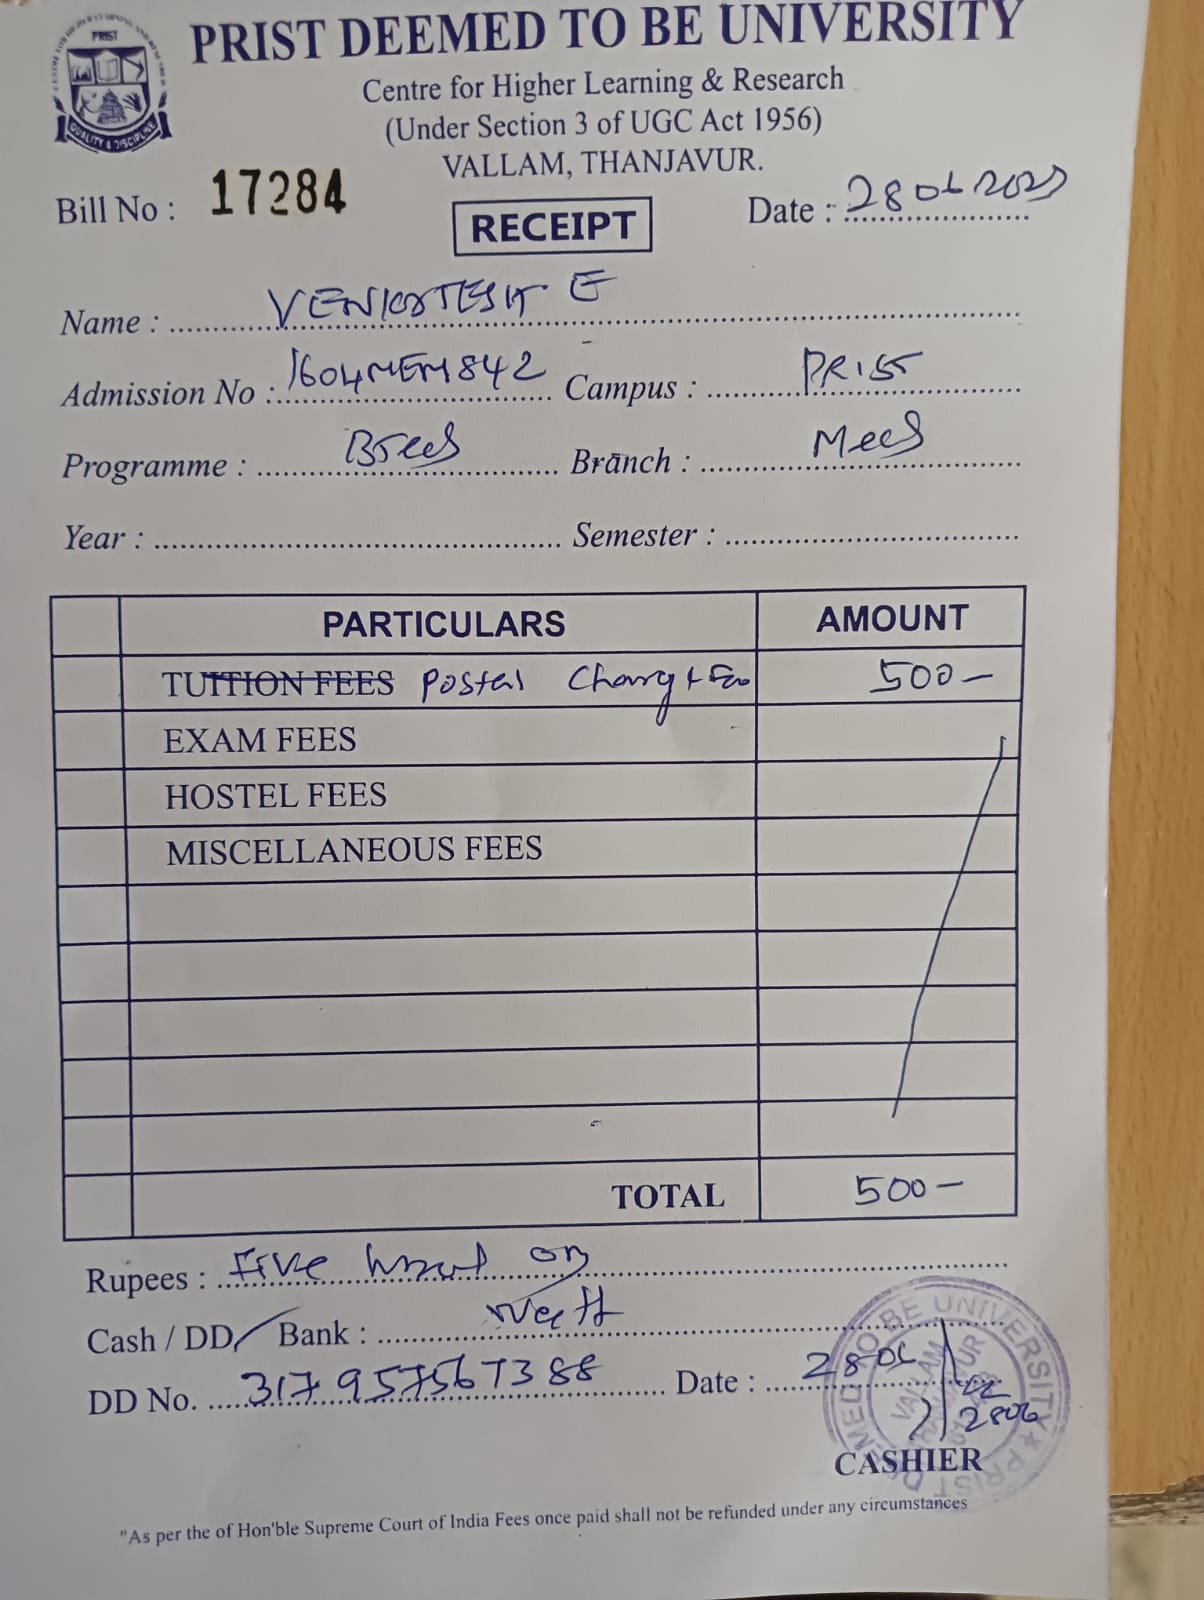 PRIST DEEMED TO BE UNIVERSITY
Centre for Higher Learning & Research
(Under Section 3 of UGC Act 1956)
VALLAM, THANJAVUR.
PRIST
QUALITY & DISCIPLINE
Bill No : 17284
RECEIPT
Date : 28 06 2023
Name : VENKATESH E
Admission No : 1604MEM842 Campus : PRIST
Programme : BTech Branch : Mech
Year : Semester :
PARTICULARS AMOUNT
TUITION FEES Postal Charg + Fee 500—
EXAM FEES
HOSTEL FEES
MISCELLANEOUS FEES
TOTAL 500—
Rupees : Five only
Cash / DD / Bank : Neft
DD No. 317957567388 Date : 28 06
2806
CASHIER
DEEMED TO BE UNIVERSITY ★ PRIST
VALLAM
"As per the of Hon'ble Supreme Court of India Fees once paid shall not be refunded under any circumstances